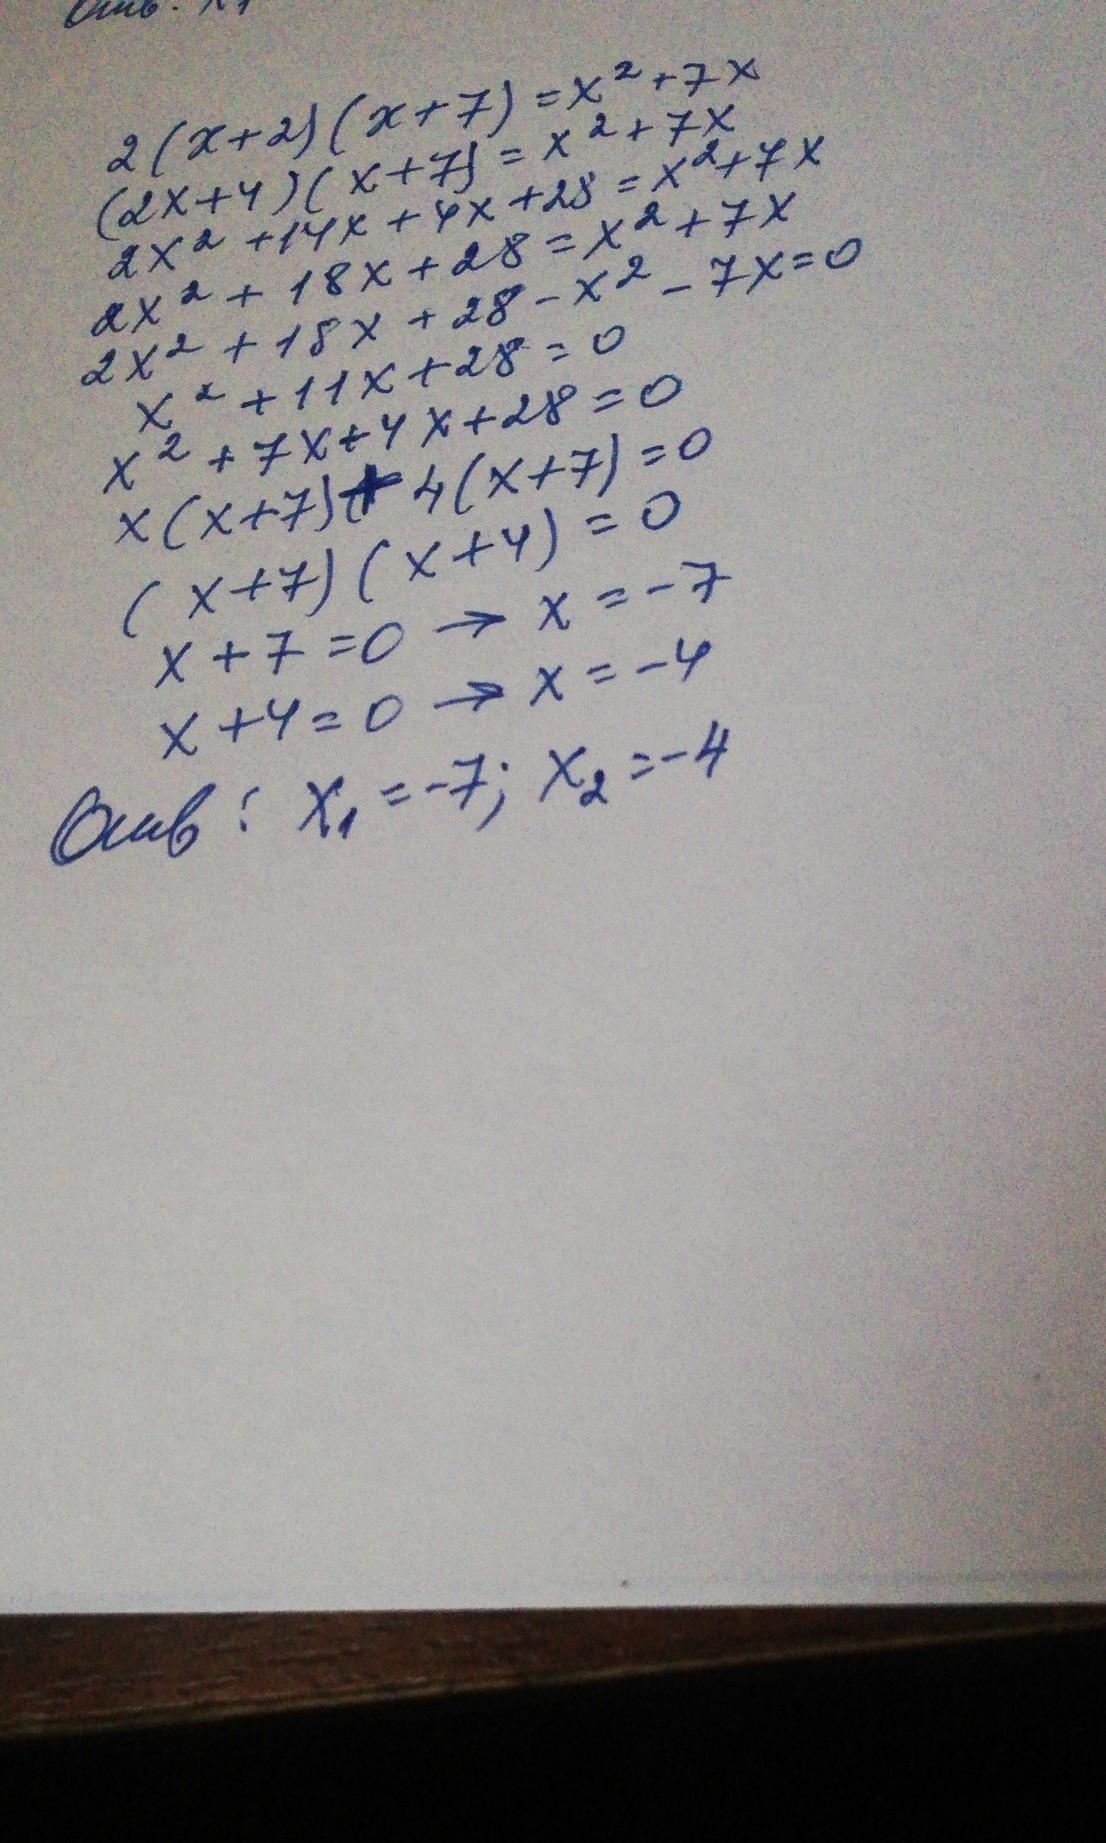 Отв: x1
2(x+2)(x+7)=x²+7x
(2x+4)(x+7)=x²+7x
2x²+14x+4x+28=x²+7x
2x²+18x+28=x²+7x
2x²+18x+28-x²-7x=0
x²+11x+28=0
x²+7x+4x+28=0
x(x+7)+4(x+7)=0
(x+7)(x+4)=0
x+7=0→x=-7
x+4=0→x=-4
Отв: x₁=-7; x₂=-4